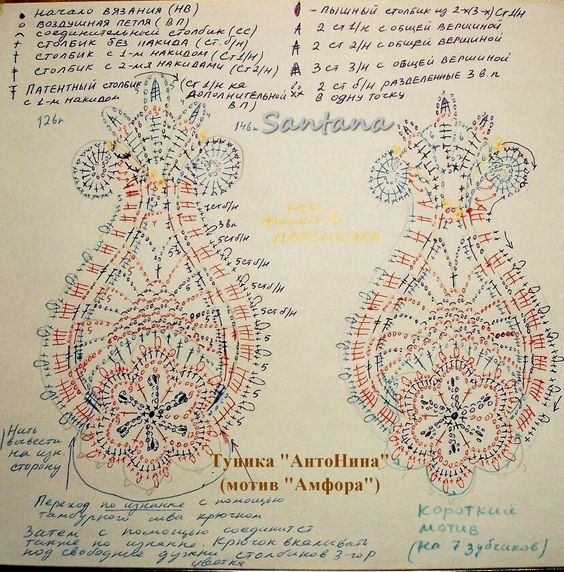 • Начало вязания (НВ)
о воздушная петля (ВП)
соединительный столбик (СС)
+ столбик без накида (Ст.б/н)
столбик с накидом (Ст1/н)
столбик с 2-мя накидами (Ст2/н)
Патентный столбик (Ст1/н на
с 1-м накидом дополнительной
ВП)
- пышный столбик из 2-х(3-х) Ст1/н
2 ст 1/н с общей вершиной
2 ст 2/н с общей вершиной
3 ст 3/н с общей вершиной
2 ст б/н разделенные 3 в.п
в одну точку
126п
146п
Santana
7стб/н
3вп
5стб/н
5стб/н
5стб/н
5стб/н
5стб/н
5стб/н
Нить
вывести
на изн.
сторону
Туника "АнтоНина"
(мотив "Амфора")
Переход по изнанке с помощью
тамбурного шва крючком
Затем с помощью соединит ст
также по изнанке. Крючок вкалывать
под свободные дужки столбиков 3-го р
цветка
короткий
мотив
(на 7 зубчиков)